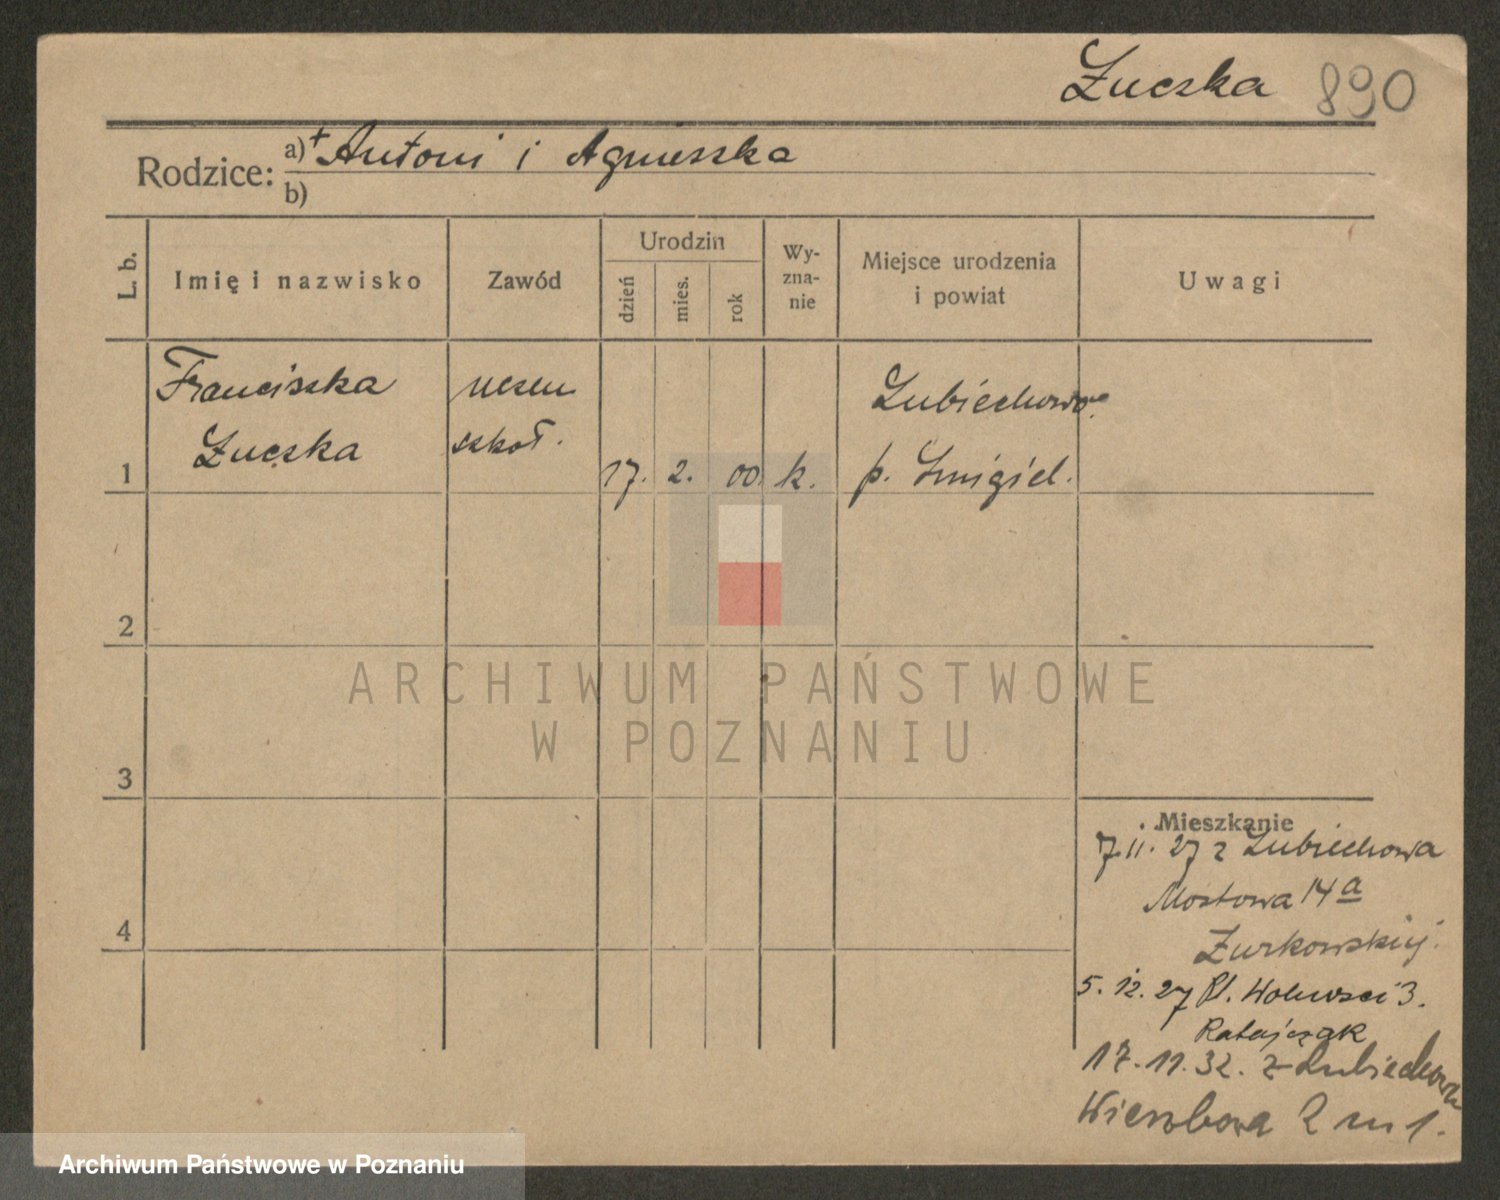 Łuczka 890
Rodzice: a) + Antoni i Agnieszka
b)
L. b.
Imię i nazwisko
Zawód
Urodzin
dzień
mies.
rok
Wy-
zna-
nie
Miejsce urodzenia
i powiat
Uwagi
1
Franciszka
Łuczka
uczen
szkoł.
17. 2. 00. k.
Lubiechowo
p. Śmigiel.
2
3
4
ARCHIWUM PAŃSTWOWE
W POZNANIU
Mieszkanie
7.11.27 z Lubiechowa
Mostowa 14a
Żurkowskiej.
5.12.27 Pl. Wolności 3.
Ratajczak
17.11.32. z Lubiechowa
Wierzbowa 2 m 1.
Archiwum Państwowe w Poznaniu